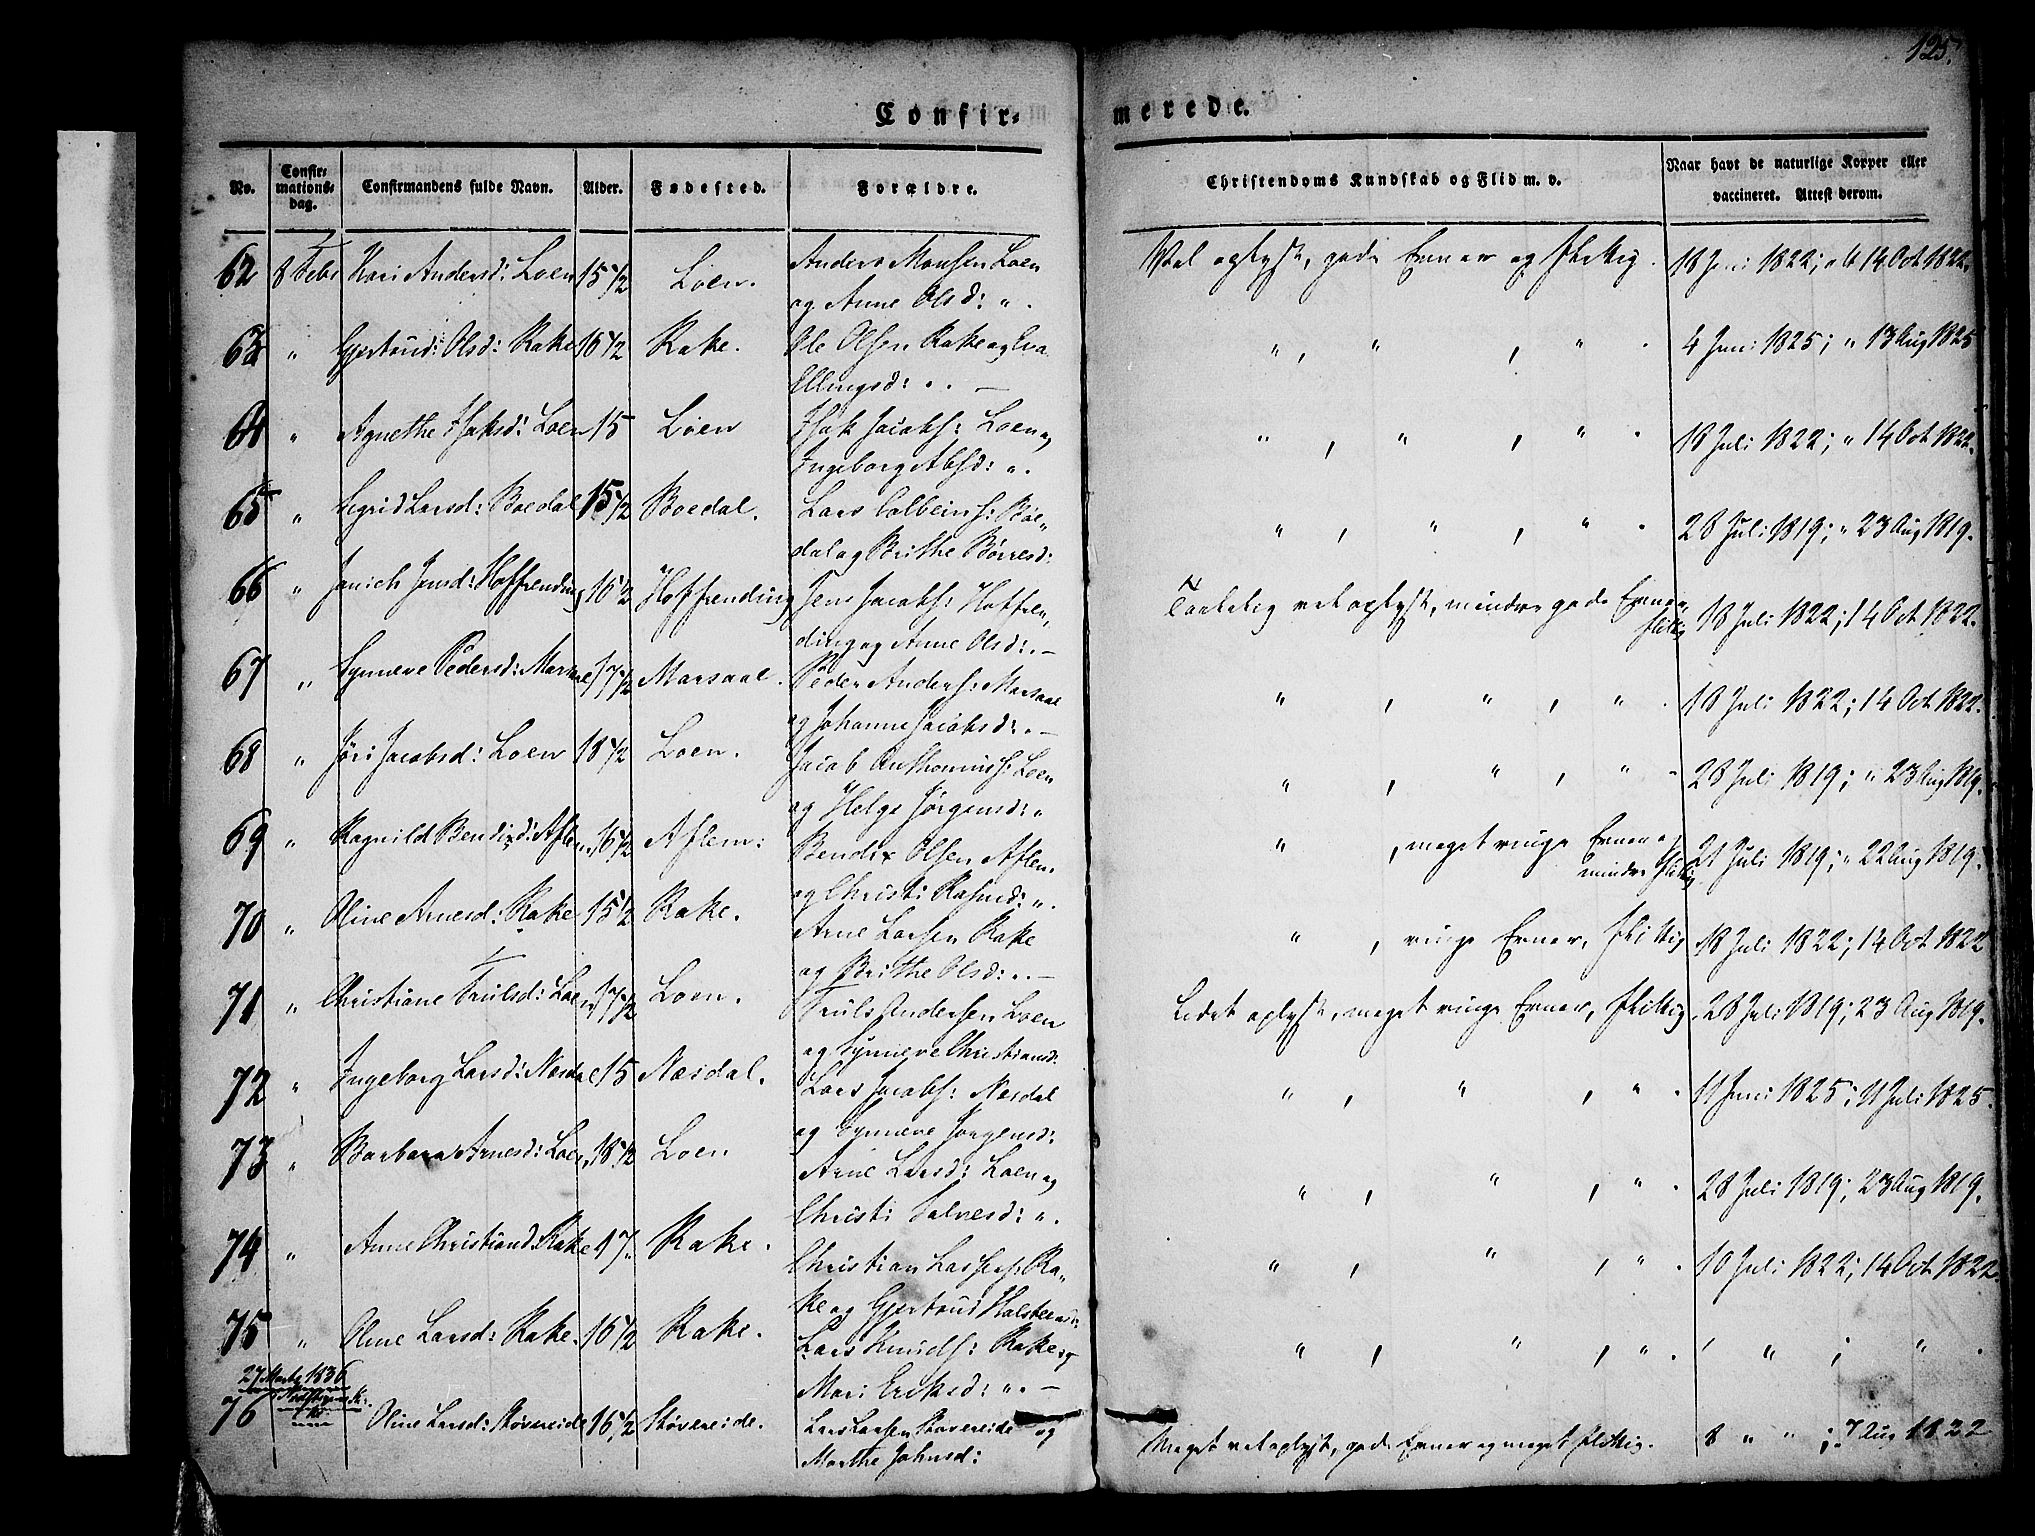 125.
Confir- merede.
No. Confir-mations-dag. Confirmandens fulde Navn. Alder. Fødested. Forældre. Christendoms Kundskab og Flid m. v. Naar havt de naturlige Kopper eller vaccineret. Attest derom.
62 8 Febr Kari Andersd: Loen 15 1/2 Loen. Anders Monsen Loen Vel oplyst, gode Evner og flittig. 18 Juni 1822; att 14 Oct 1822.
og Anne Olsd: ".
63 " Gjertrud: Olsd: Rake 16 1/2 Rake. Ole Olsen Rake og Eva " , " , " . 4 Juni 1825; " 13 Aug 1825
Ellingsd: " . —
64 " Agnethe Isaksd: Loen 15 Loen Isak Jacobs: Loen og " , " , " . 18 Juli 1822; " 14 Oct 1822.
Ingeborg Absd: ".
65 " Sigrid Larsd: Boedal 15 1/2 Boedal. Lars Colbeins: Boe- " , " , " . 28 Juli 1819; " 23 Aug 1819.
dal og Brithe Børresd:
66 " Janich Jensd: Hoffrending 16 1/2 Hoffrending Jens Jacobs: Hoffren- Taalelig vel oplyst, mindre gode Evner, 18 Juli 1822; 14 Oct 1822.
flittig
ding og Anne Olsd: . —
67 " Synneve Pedersd: Marsaae 17 1/2 Marsaae. Peder Anders: Marsaae " , " , " . 18 Juli 1822; 14 Oct 1822.
og Johanne Jacobsd: . —
68 " Jøri Jacobsd: Loen 18 1/2 Loen. Jacob Anthonius: Loen " , " , " . 28 Juli 1819; " 23 Aug 1819.
og Helge Jørgensd: "
69 " Ragnild Bendixd: Aflem 16 1/2 Aflem: Bendix Olsen Aflem " , meget ringe Evner og 21 Juli 1819; " 22 Aug 1819.
mindre flittig
og Christi Rasmd: ".
70 " Oline Arnesd: Rake 15 1/2 Rake. Arne Larsen Rake " , ringe Evner, flittig 18 Juli 1822; 14 Oct 1822
og Brithe Olsd: . —
71 " Christiane Trulsd: Loen 17 1/2 Loen. Truls Andersen Loen Lidet oplyst, meget ringe Evner, flittig. 28 Juli 1819; 23 Aug 1819.
og Synneve Christiansd:
72 " Ingeborg Larsd: Nesdal 15 Nesdal. Lars Jacobs: Nesdal " , " , " . 11 Juni 1825; 11 Juli 1825.
og Synneve Jørgensd:
73 " Barbara Arnesd: Loen 18 1/2 Loen Arne Larsd: Loen og " , " , " . 28 Juli 1819; 23 Aug 1819.
Christi Salvesd: ".
74 " Anne Christiand: Rake 17 " Rake. Christian Lassens: Ra- " , " , " . 10 Juli 1822; 14 Oct 1822.
ke og Gjertrud Halsteensd:
75 " Oline Larsd: Rake. 16 1/2 Rake. Lars Knuds: Rake og " , " , " . " ; " .
Mari Eriksd: " . —
27 Marts 1836
76 Oline Larsd: Støvreide 16 1/2 Støvreide. Lars Larsen Støvereide og Meget vel oplyst, gode Evner og meget flittig. 8 " " ; 7 Aug 1822
Marthe Johnsd: